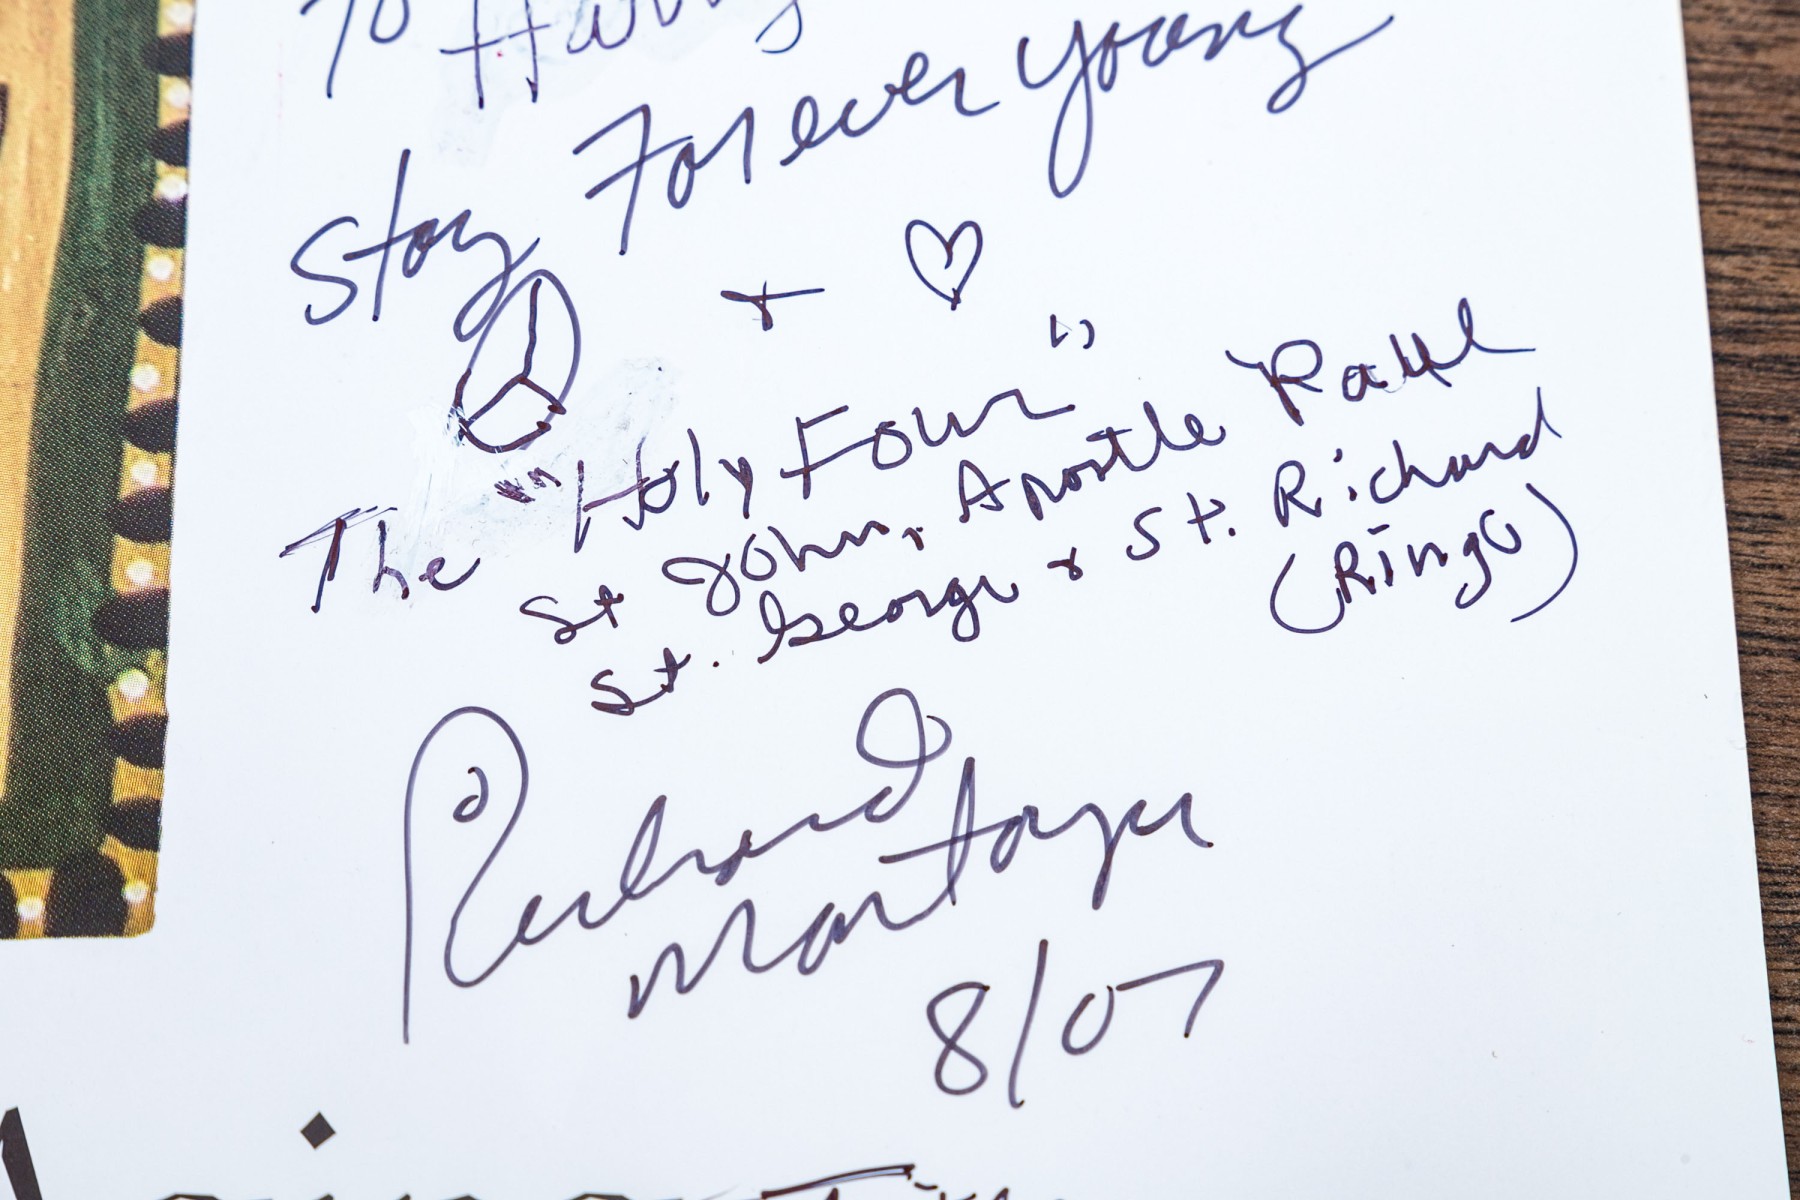 To
Stay Forever Young
+ ♡
The "Holy Four"
St John, Apostle Paul
St. George + St. Richard
(Ringo)
Richard
Montoya
8/07